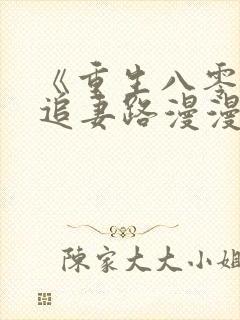 《重生八零
追妻路漫漫
陳家大大小姐